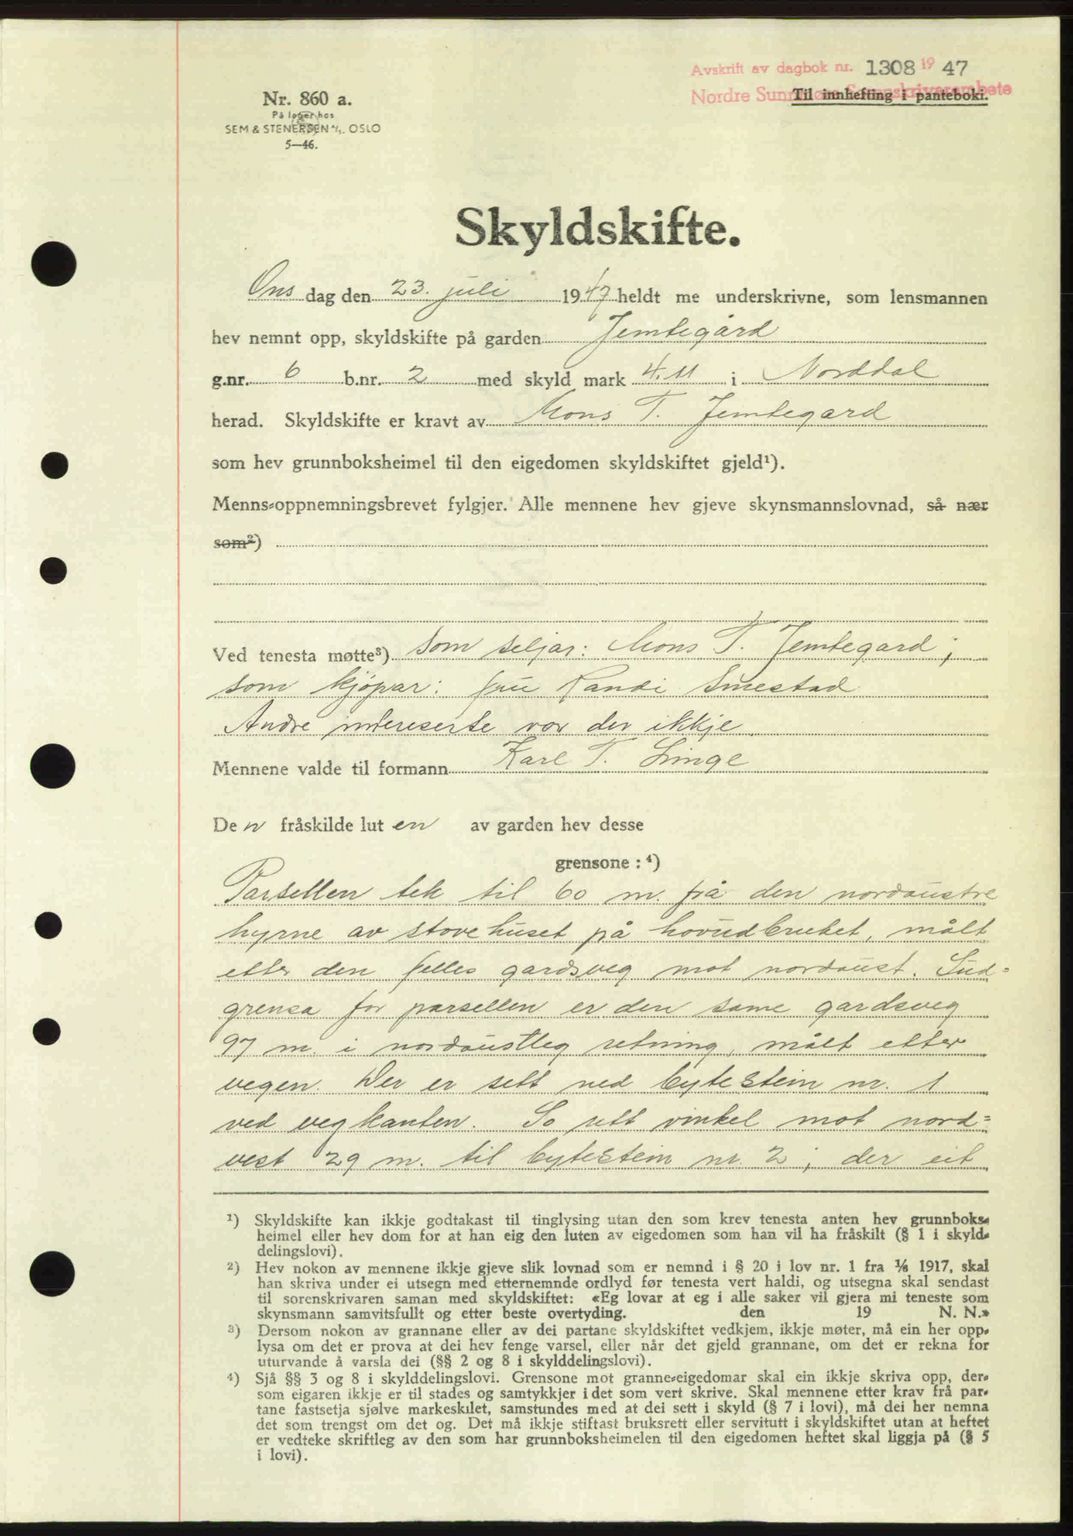 Avskrift av dagbok nr. 1308 19 47
Nordre Sunnmøre Sorenskriverembete
Til innhefting i panteboki.
Nr. 860 a.
På lager hos
SEM & STENERSEN A/S. OSLO
5—46.
Skyldskifte.
Ons dag den 23. juli 1947 heldt me underskrivne, som lensmannen
hev nemnt opp, skyldskifte på garden Jemtegård
g.nr. 6 b.nr. 2 med skyld mark 4.11 i Norddal
herad. Skyldskifte er kravt av Mons T. Jemtegard
som hev grunnboksheimel til den eigedomen skyldskiftet gjeld¹).
Menns-oppnemningsbrevet fylgjer. Alle mennene hev gjeve skynsmannslovnad, så nær
som²)
Ved tenesta møtte³) Som seljar: Mons T. Jemtegard;
som kjøpar: fru Randi Smestad
Andre interesserte var der ikkje.
Mennene valde til formann Karl T. Linge
Den fråskilde luten av garden hev desse
grensone : ⁴)
Parsellen tek til 60 m. frå den nordaustre
hyrne av stovehuset på hovudbruket, målt
etter den felles gardsveg mot nordaust. Sud-
grensa for parsellen er den same gardsveg
97 m. i nordaustleg retning, målt etter
vegen. Der er sett ned bytestein nr. 1
ved vegkanten. So rett vinkel mot nord-
vest 29 m. til bytestein nr. 2; der eit
¹) Skyldskifte kan ikkje godtakast til tinglysing utan den som krev tenesta anten hev grunnboks-
heimel eller hev dom for at han eig den luten av eigedomen som han vil ha fråskilt (§ 1 i skyld-
delingslovi).
²) Hev nokon av mennene ikkje gjeve slik lovnad som er nemnd i § 20 i lov nr. 1 fra ⅛ 1917, skal
han skriva under ei utsegn med etternemnde ordlyd før tenesta vert haldi, og utsegna skal sendast
til sorenskrivaren saman med skyldskiftet: «Eg lovar at eg i alle saker vil gjera mi teneste som
skynsmann samvitsfullt og etter beste overtyding. den 19 N. N.»
³) Dersom nokon av grannane eller av dei partane skyldskiftet vedkjem, ikkje møter, må ein her opp-
lysa om det er prova at dei hev fenge varsel, eller når det gjeld grannane, om det er rekna for
uturvande å varsla dei (§§ 2 og 8 i skylddelingslovi).
⁴) Sjå §§ 3 og 8 i skylddelingslovi. Grensone mot granne-eigedomar skal ein ikkje skriva opp, der-
som eigaren ikkje er til stades og samtykkjer i det som vert skrive. Skal mennene etter krav frå par-
tane fastsetja sjølve markeskilet, samstundes med at dei sett i skyld (§ 7 i lovi), må dei her nemna
det som trengst om det og. Det må ikkje stiftast bruksrett eller servitutt i skyldskiftet utan at heftet
er vedteke skriftleg av den som har grunnboksheimelen til den eigedomen heftet skal liggja på (§ 5
i lovi).